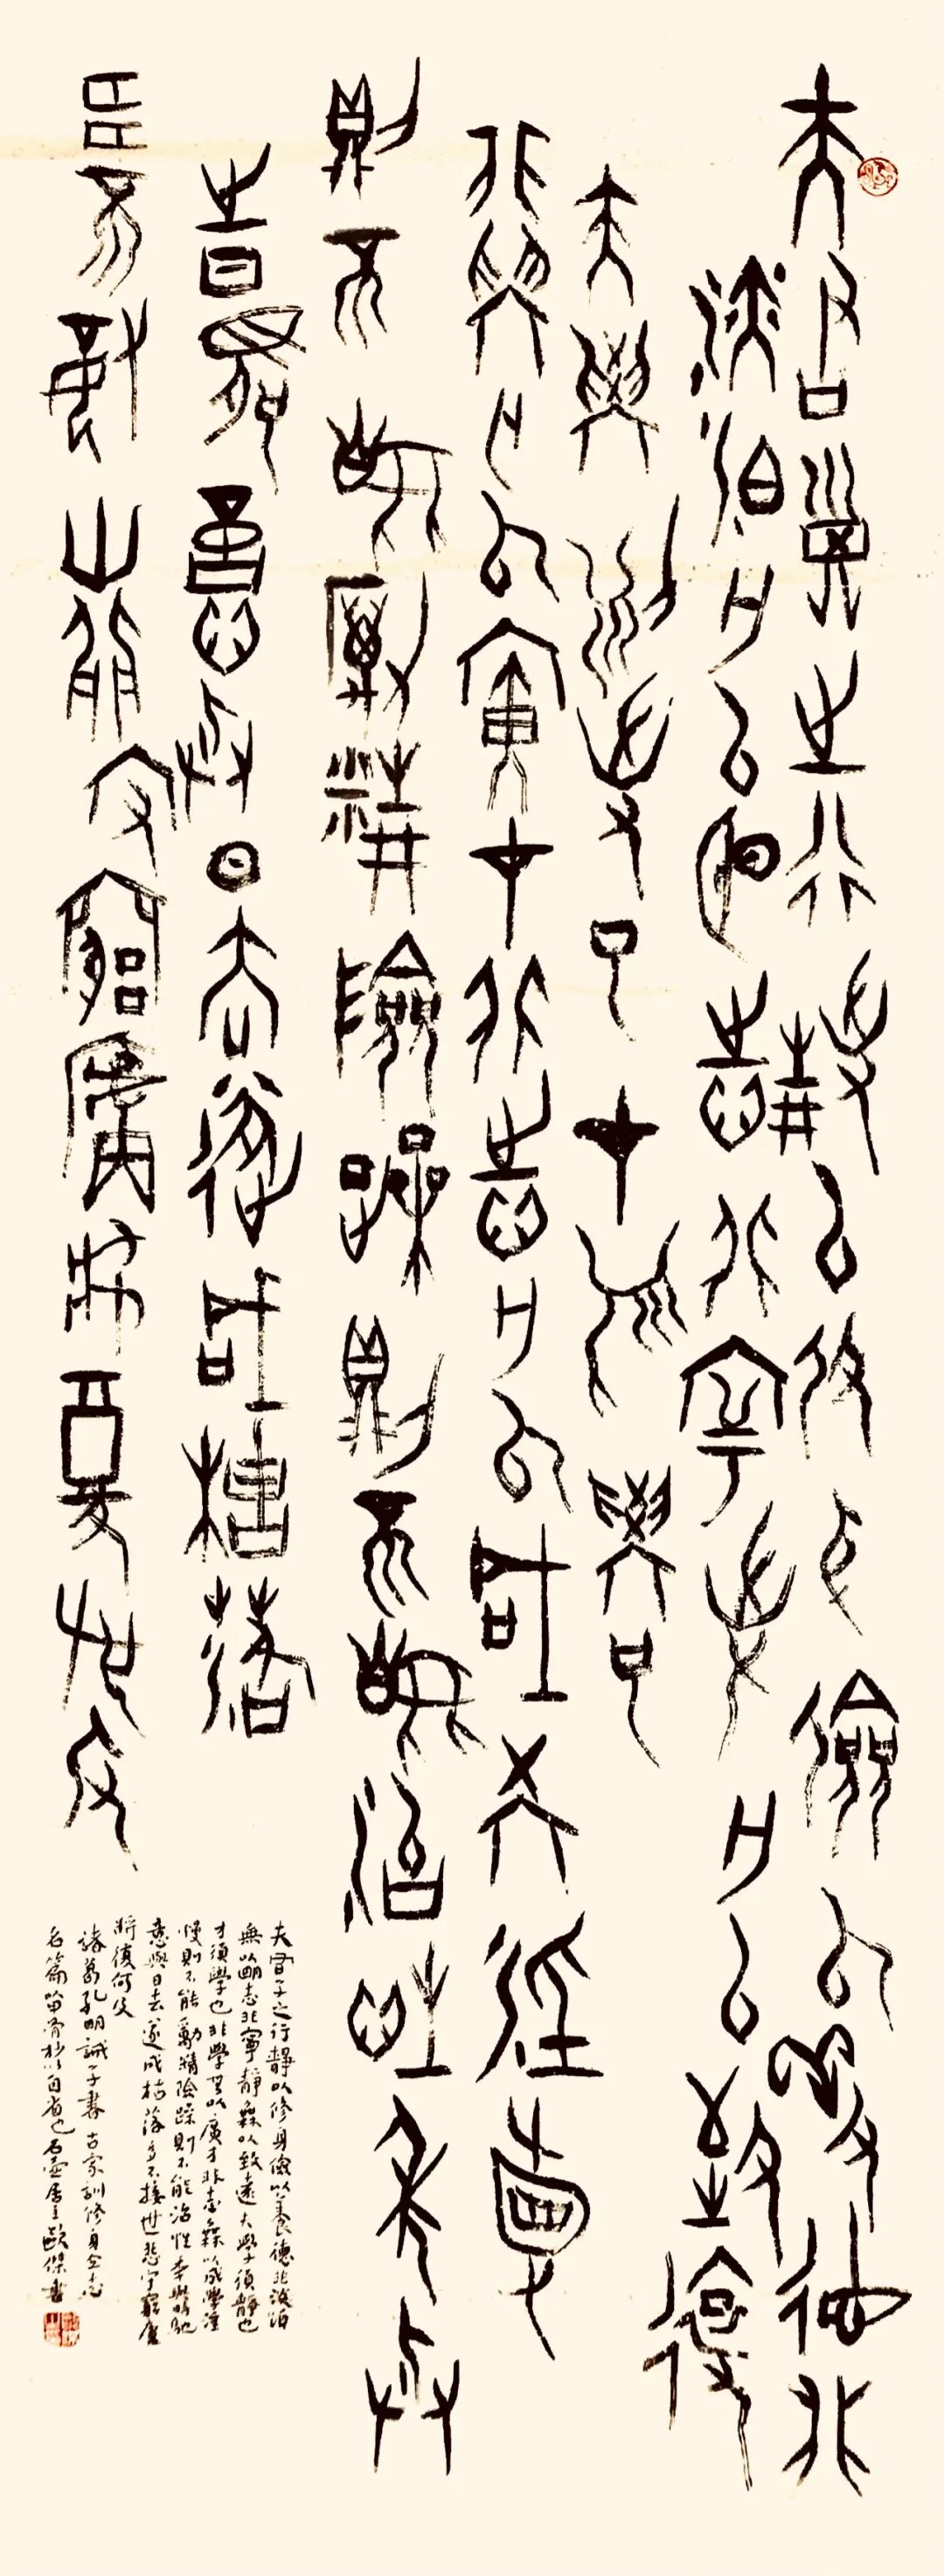 夫君子之行靜以修身儉以養德非
淡泊無以明志非寧靜無以致遠
夫學須靜也才須學也
非學無以廣才非志無以成學淫慢
則不能勵精險躁則不能治性年與
時馳意與日去遂成枯落
多不接世悲守窮廬將復何及
夫君子之行靜以修身儉以養德非淡泊
無以明志非寧靜無以致遠夫學須靜也
才須學也非學無以廣才非志無以成學淫
慢則不能勵精險躁則不能治性年與時馳
意與日去遂成枯落多不接世悲守窮廬
將復何及
諸葛孔明誡子書古家訓修身立志
名篇抄以自省也石壺居主歐傑書